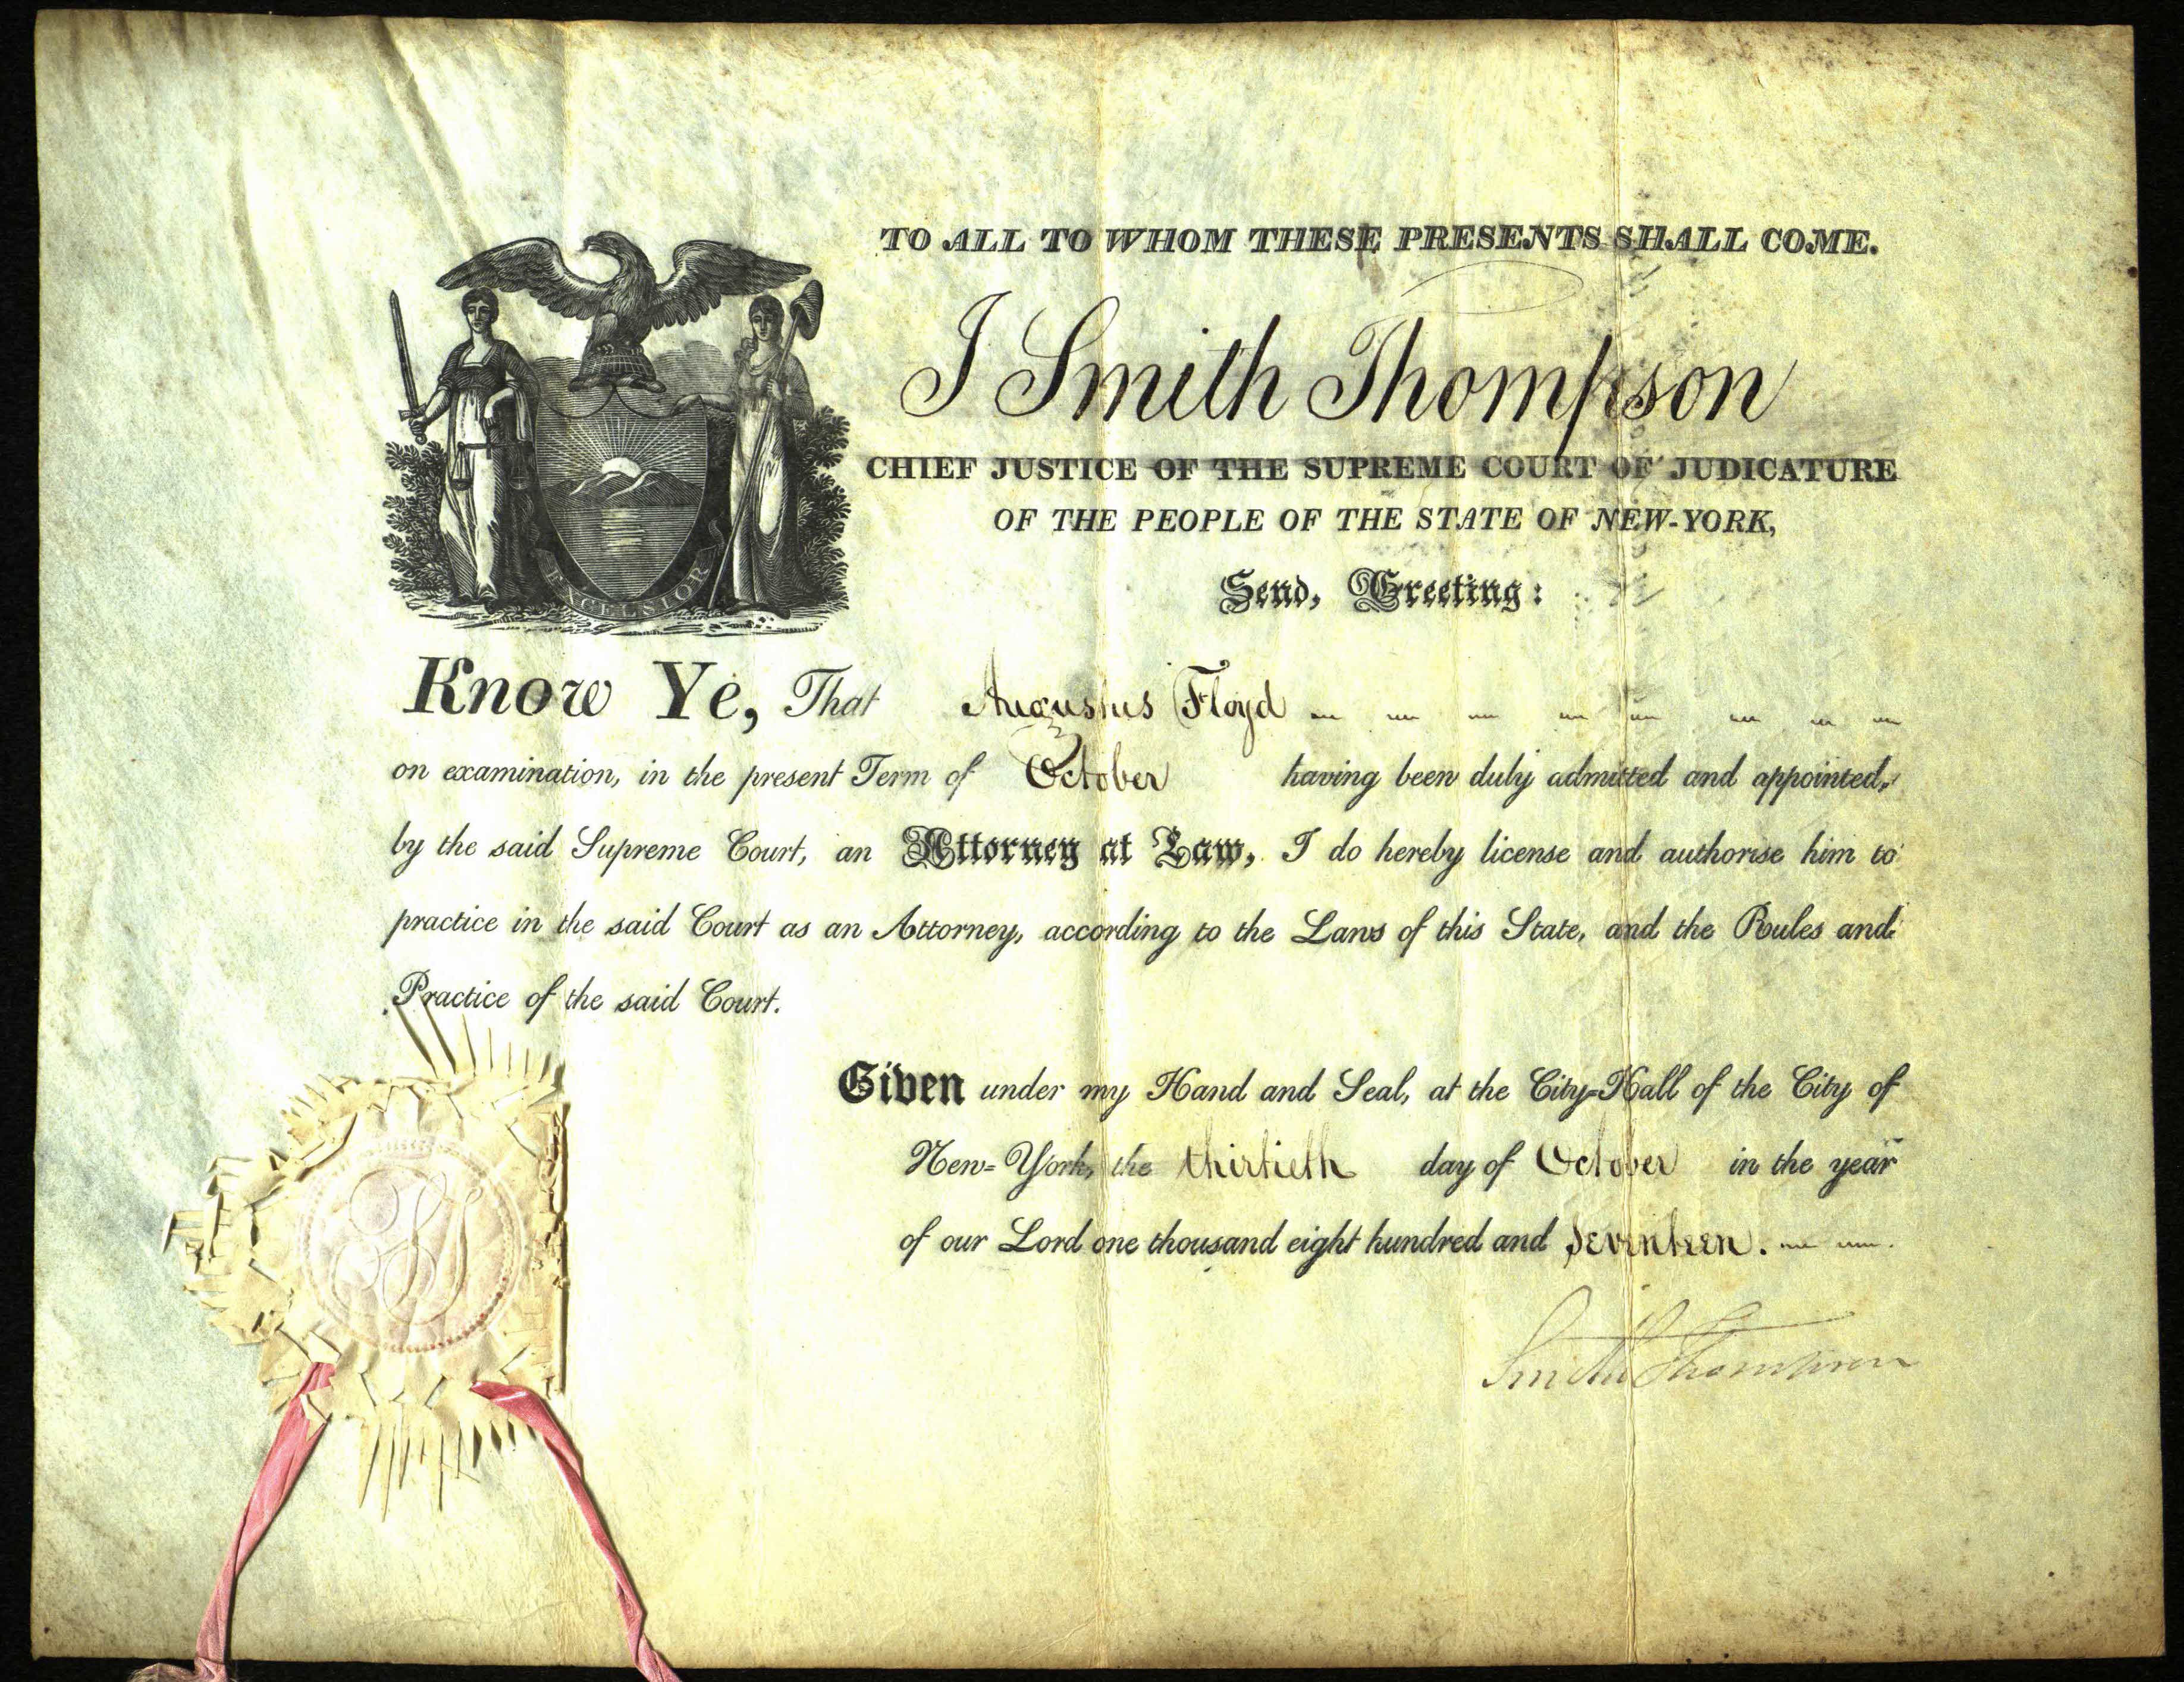 TO ALL TO WHOM THESE PRESENTS SHALL COME.
I Smith Thompson
CHIEF JUSTICE OF THE SUPREME COURT OF JUDICATURE
OF THE PEOPLE OF THE STATE OF NEW-YORK,
Send, Greeting:
EXCELSIOR
Know Ye, That Augustus Floyd
on examination, in the present Term of October having been duly admitted and appointed,
by the said Supreme Court, an Attorney at Law, I do hereby license and authorise him to
practice in the said Court as an Attorney, according to the Laws of this State, and the Rules and
Practice of the said Court.
Given under my Hand and Seal, at the City-Hall of the City of
New-York, the thirtieth day of October in the year
of our Lord one thousand eight hundred and seventeen.
Smith Thompson